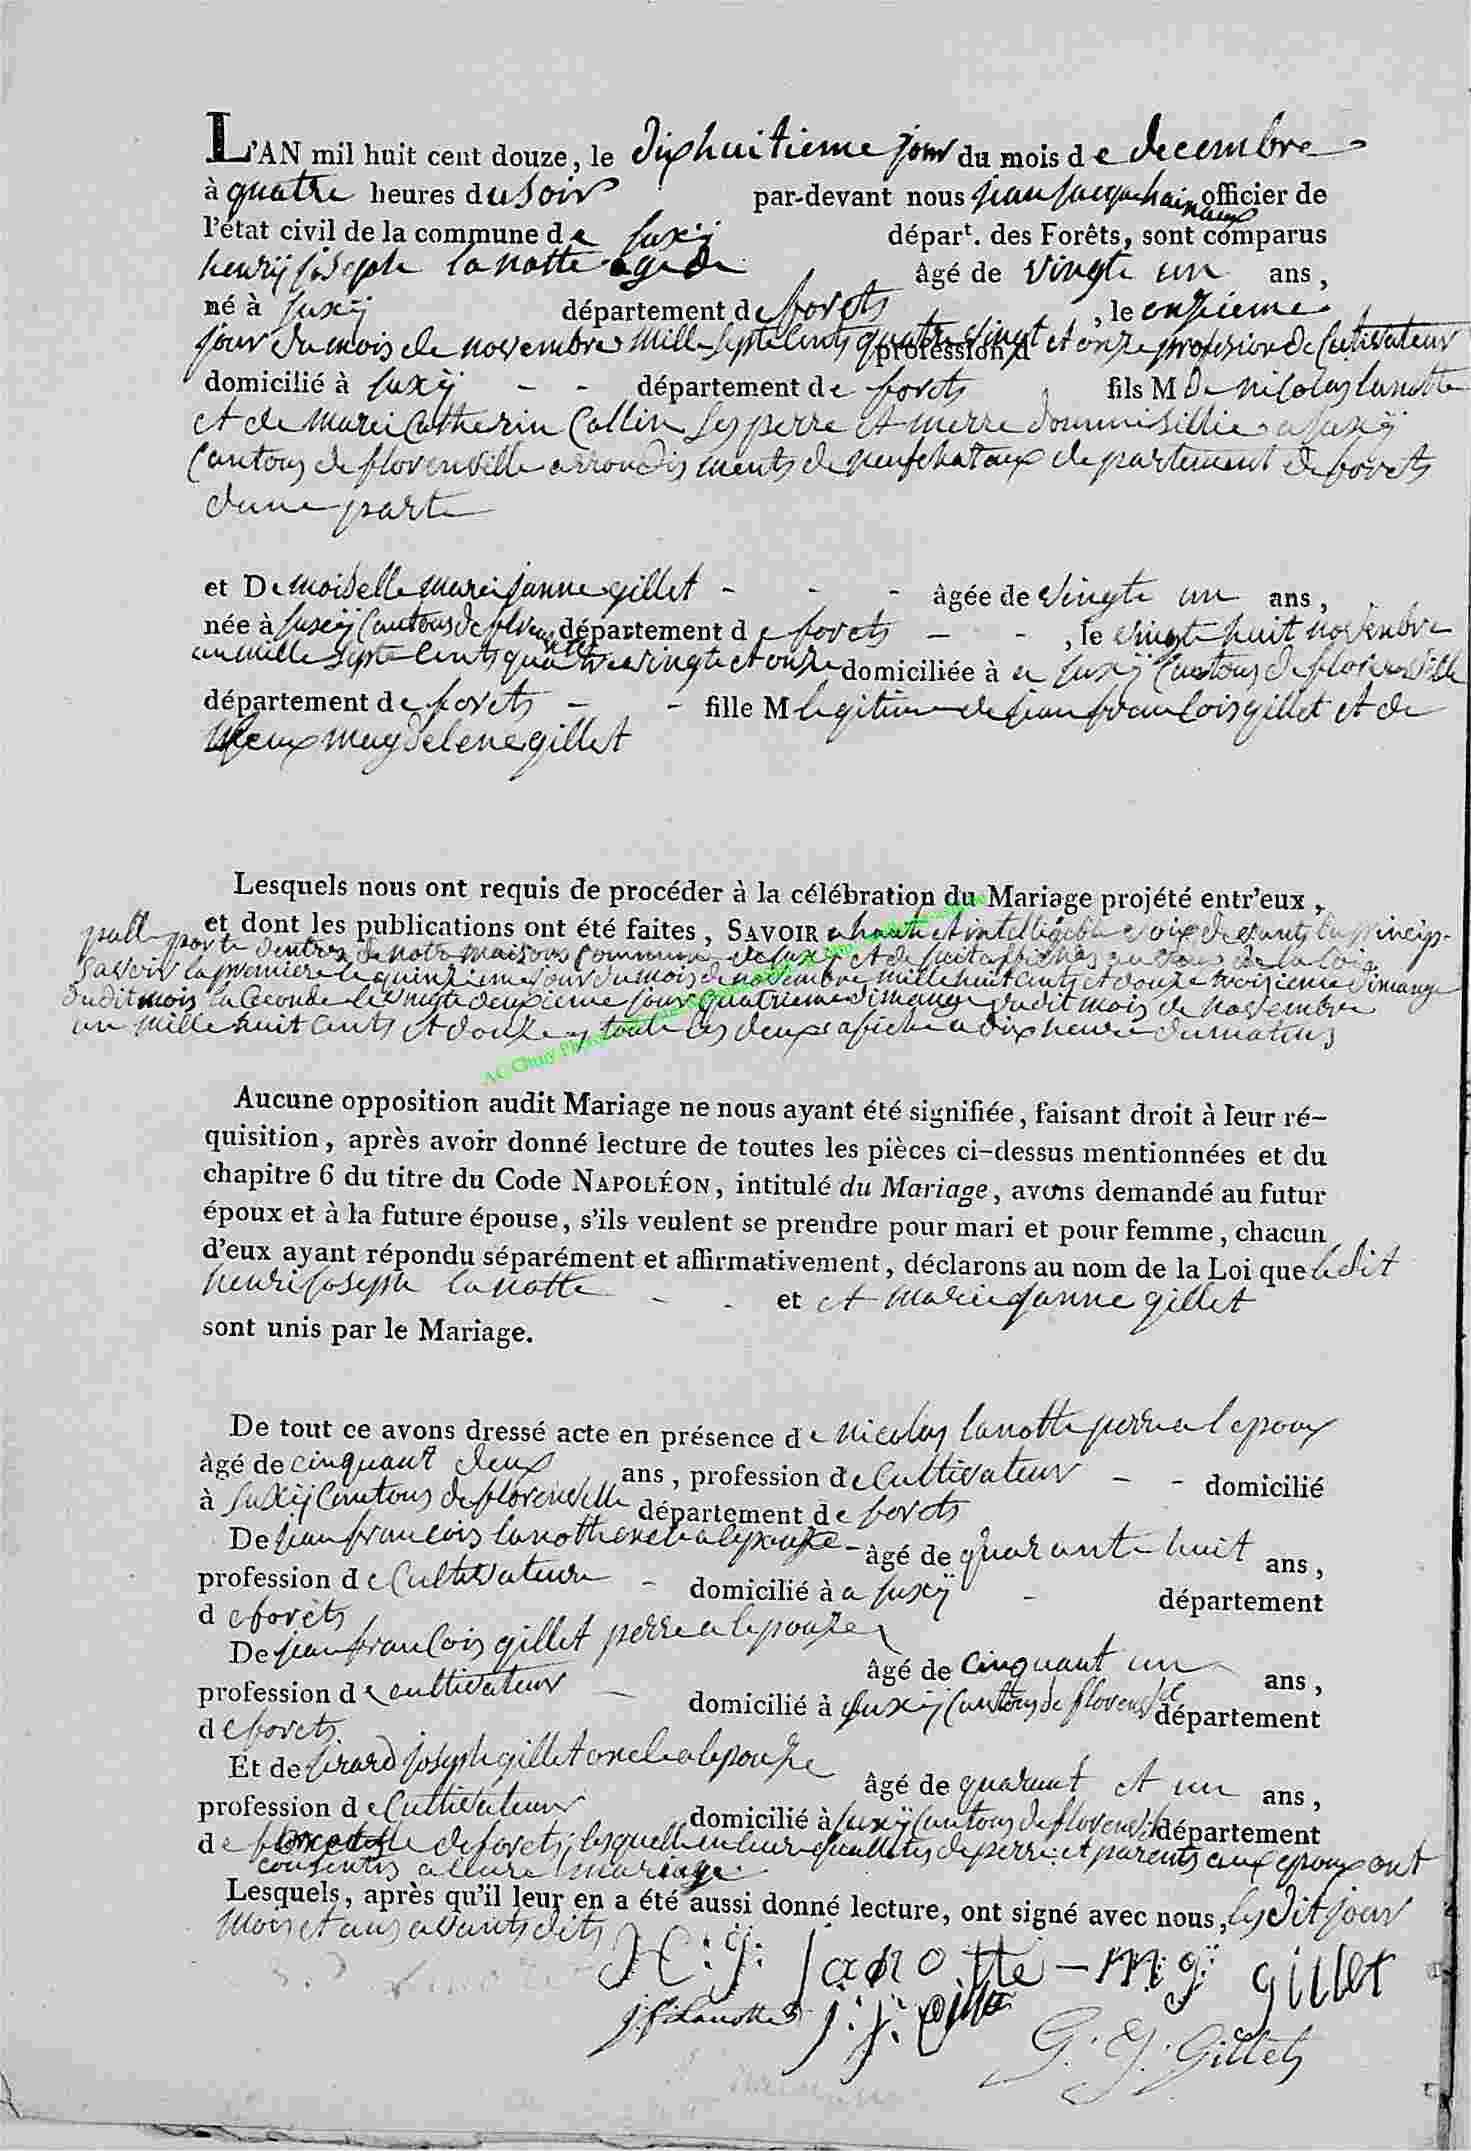 L'AN mil huit cent douze, le dixhuitieme jour du mois de decembre
à quatre heures du soir par-devant nous jean jacque hainaux officier de
l'état civil de la commune de suxÿ départ. des Forêts, sont comparus
henrÿ joseph lanotte age de âgé de vingte un ans,
né à suxÿ département de forets, le onzieme
jour du mois de novembre mille septe cents quatre vingt et onze profession de Cultivateur
profession d
domicilié à suxÿ - - département de forets fils M de nicolas lanotte
et de marie Catherin Collin ses perre et merre dommisillie a suxÿ
Cantons de florenville arrondis ments de neufchataux departement de forets
dune parte
et Demoiselle marie janne gillet - - - âgée de vingte un ans,
née à suxÿ Cantons de floren ville département de forets - - , le vingte huit novembre
an mille septe Cents quatre vingte et onze domiciliée à a suxÿ Cantons de florenville
département de forets - - fille M legitime de jean francois gillet et de
magdelene gillet
Lesquels nous ont requis de procéder à la célébration du Mariage projété entr'eux,
et dont les publications ont été faites, SAVOIR a haute et intelligible voix devants la princip-
palle porte dentrez de notre maisons Commune de suxÿ et de suit affichés
Savoir la premiere le quinzieme jour du mois de novembre mille huit Cents et douze troisieme dimange
dudit mois la Seconde le vingte deuxieme jour quatrieme dimange dudit mois de novembre
an mille huit Cents et douze toute les deux afiche a dix heure du matins
AC Chiny
Aucune opposition audit Mariage ne nous ayant été signifiée, faisant droit à leur ré-
quisition, après avoir donné lecture de toutes les pièces ci-dessus mentionnées et du
chapitre 6 du titre du Code NAPOLÉON, intitulé du Mariage, avons demandé au futur
époux et à la future épouse, s'ils veulent se prendre pour mari et pour femme, chacun
d'eux ayant répondu séparément et affirmativement, déclarons au nom de la Loi que le dit
henri joseph lanotte - - et et marie janne gillet
sont unis par le Mariage.
De tout ce avons dressé acte en présence de nicolas lanotte perre a lepoux
âgé de cinquant deux ans, profession de Cultivateur - - domicilié
à suxÿ Cantons de florenville département de forets
De jean francois lanotte oncle a lepouze - âgé de quarante huit ans,
profession de Cultivateur - domicilié à a suxÿ - département
de forets
De jean francois gillet perre a lepouze
âgé de cinquant un ans,
profession de cultivateur - domicilié à suxÿ Cantons de florenville département
de forets
Et de girard joseph gillet oncle a lepouze âgé de quarant et un ans,
profession de Cultivateur domicilié à suxÿ Cantons de florenville département
de de forets, lesquelle en leur quallites de perre et parents aux epoux ont
consentis a leure mariage
Lesquels, après qu'il leur en a été aussi donné lecture, ont signé avec nous, les dit jour
mois et ans avants dits
H:j: lanotte - m:j: gillet
j f Lanotte j:j: gillet
G. J. Gillet